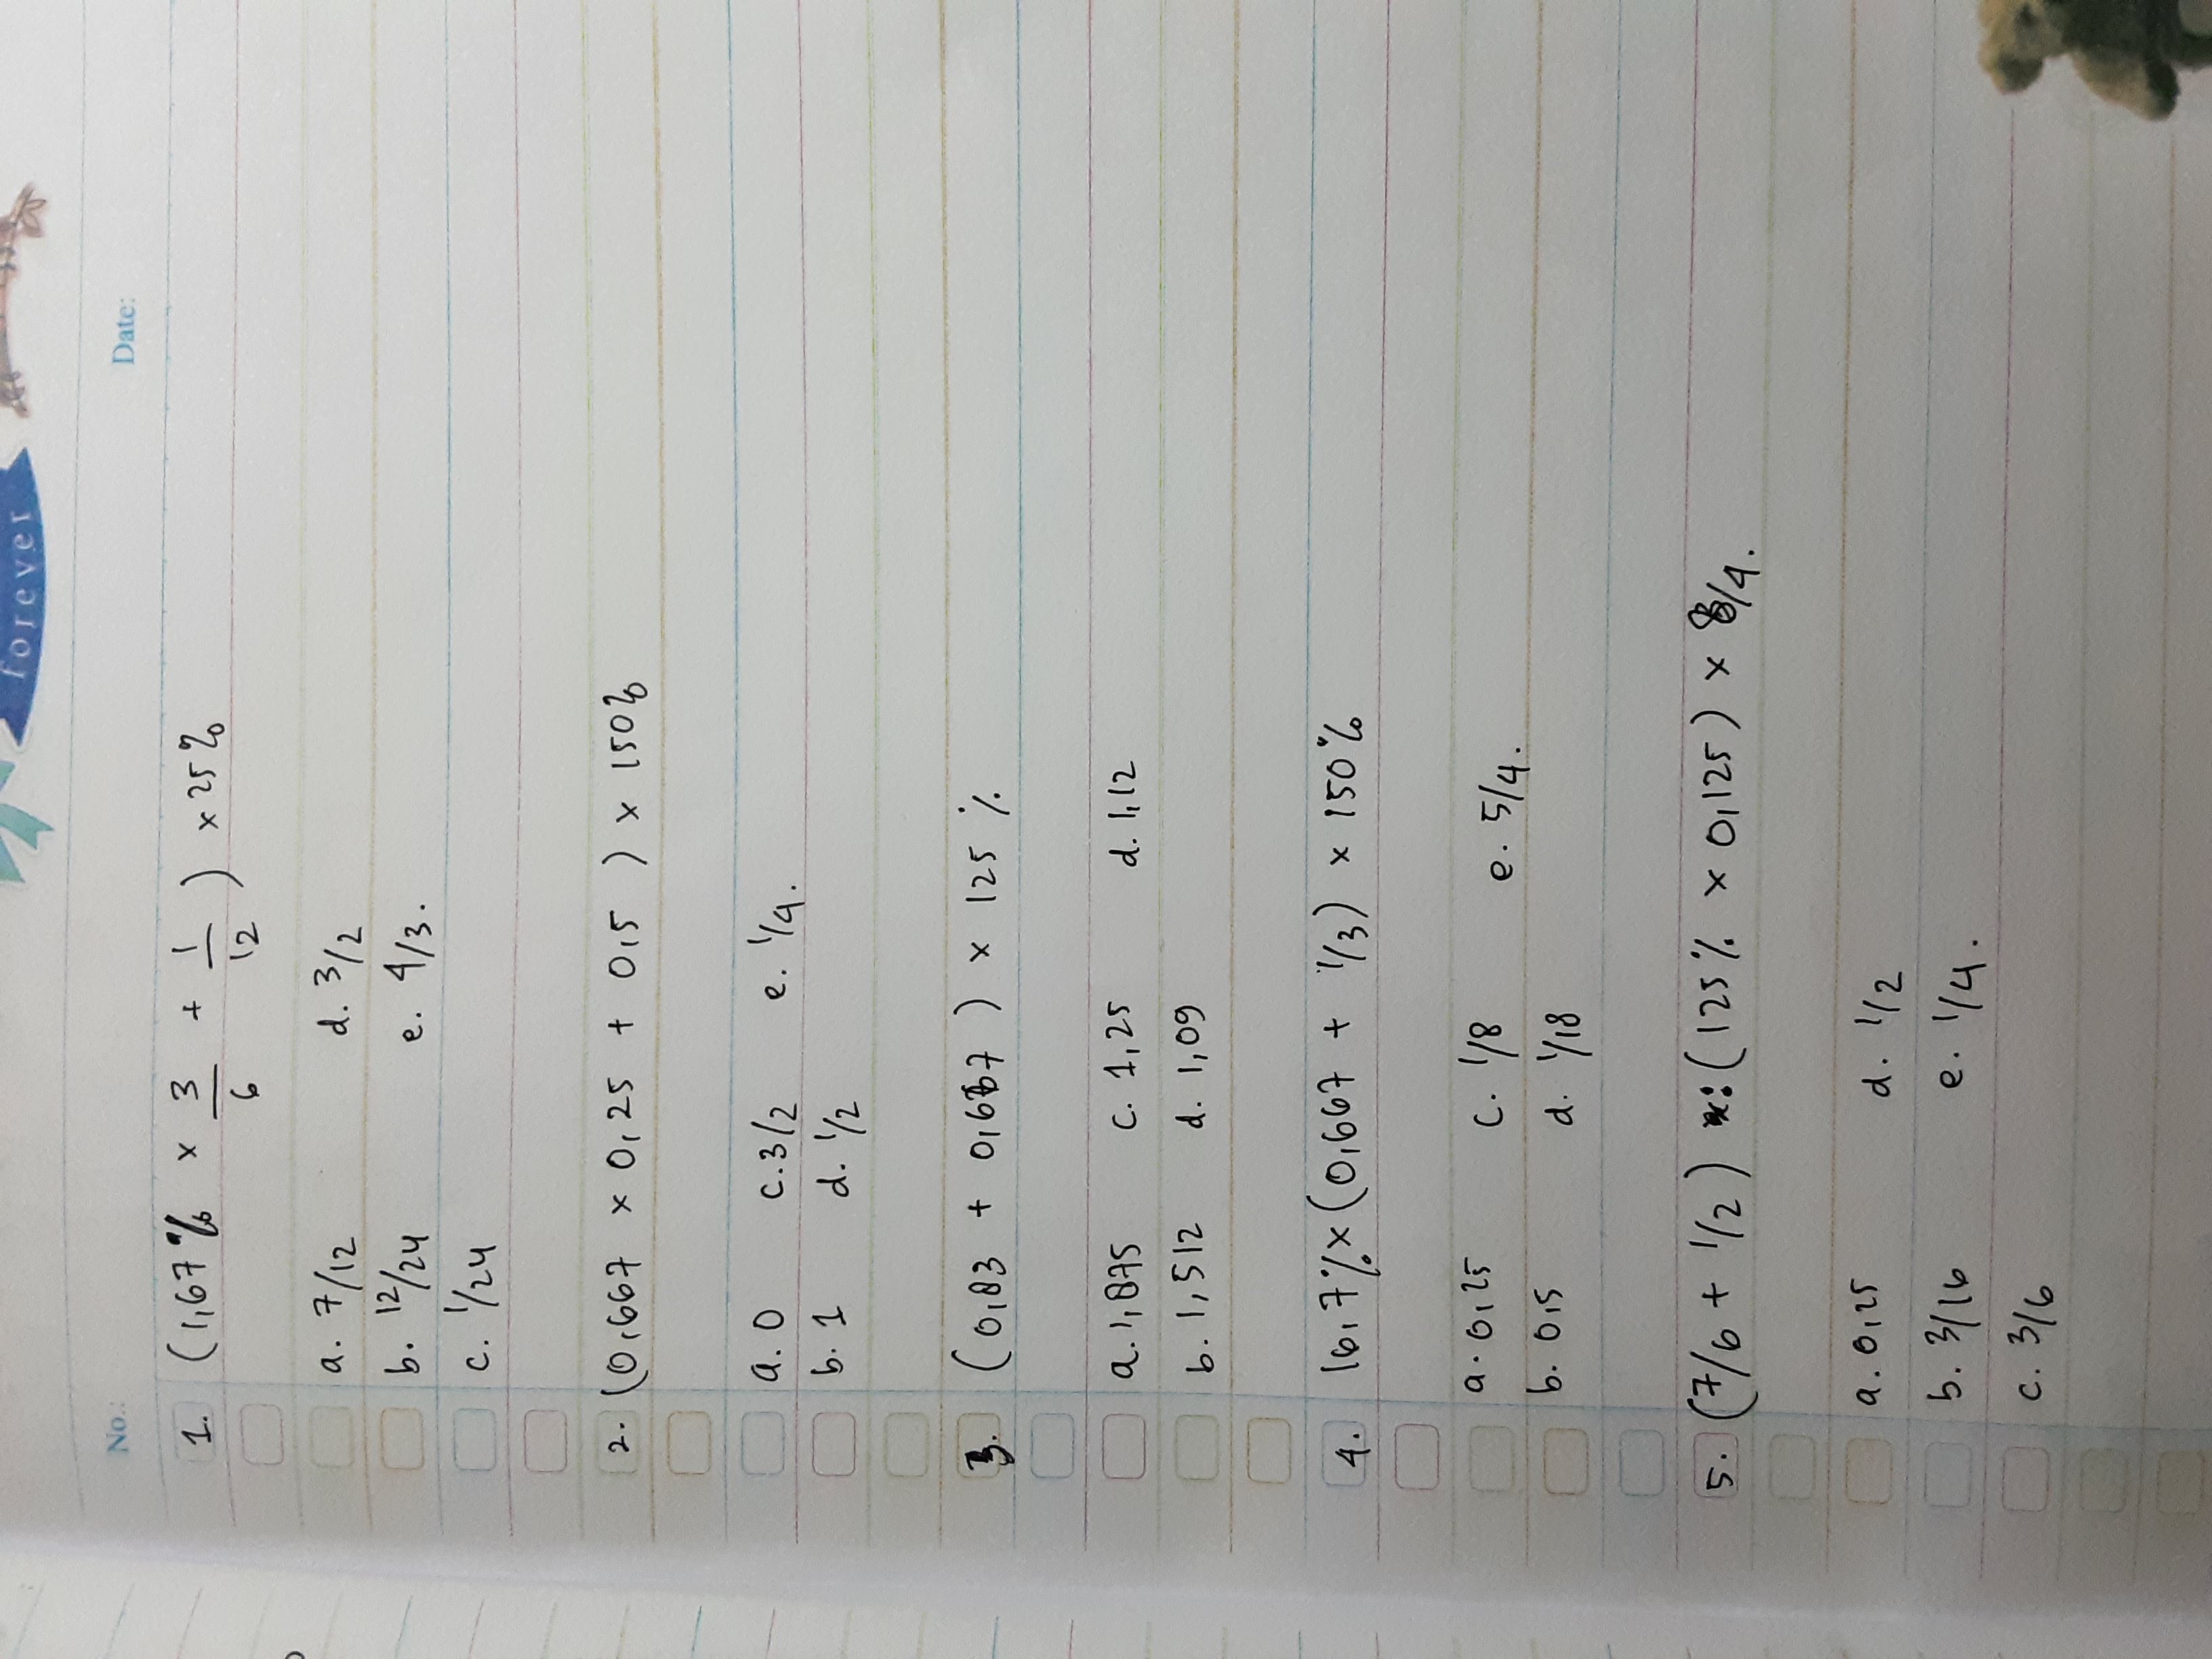 forever
No.: Date:
1. (1,67% x 3/6 + 1/12) x 25%
a. 7/12 d. 3/2
b. 12/24 e. 4/3.
c. 1/24
2. (0,667 x 0,25 + 0,5) x 150%
a. 0 c. 3/2 e. 1/4.
b. 1 d. 1/2
3. (0,83 + 0,667) x 125%
a. 1,875 c. 1,25 d. 1,12
b. 1,512 d. 1,09
4. 16,7% x (0,667 + 1/3) x 150%
a. 0,25 c. 1/8 e. 5/4.
b. 0,5 d. 1/18
5. (7/6 + 1/2) : (125% x 0,125) x /4.
a. 0,25 d. 1/2
b. 3/16 e. 1/4.
c. 3/6